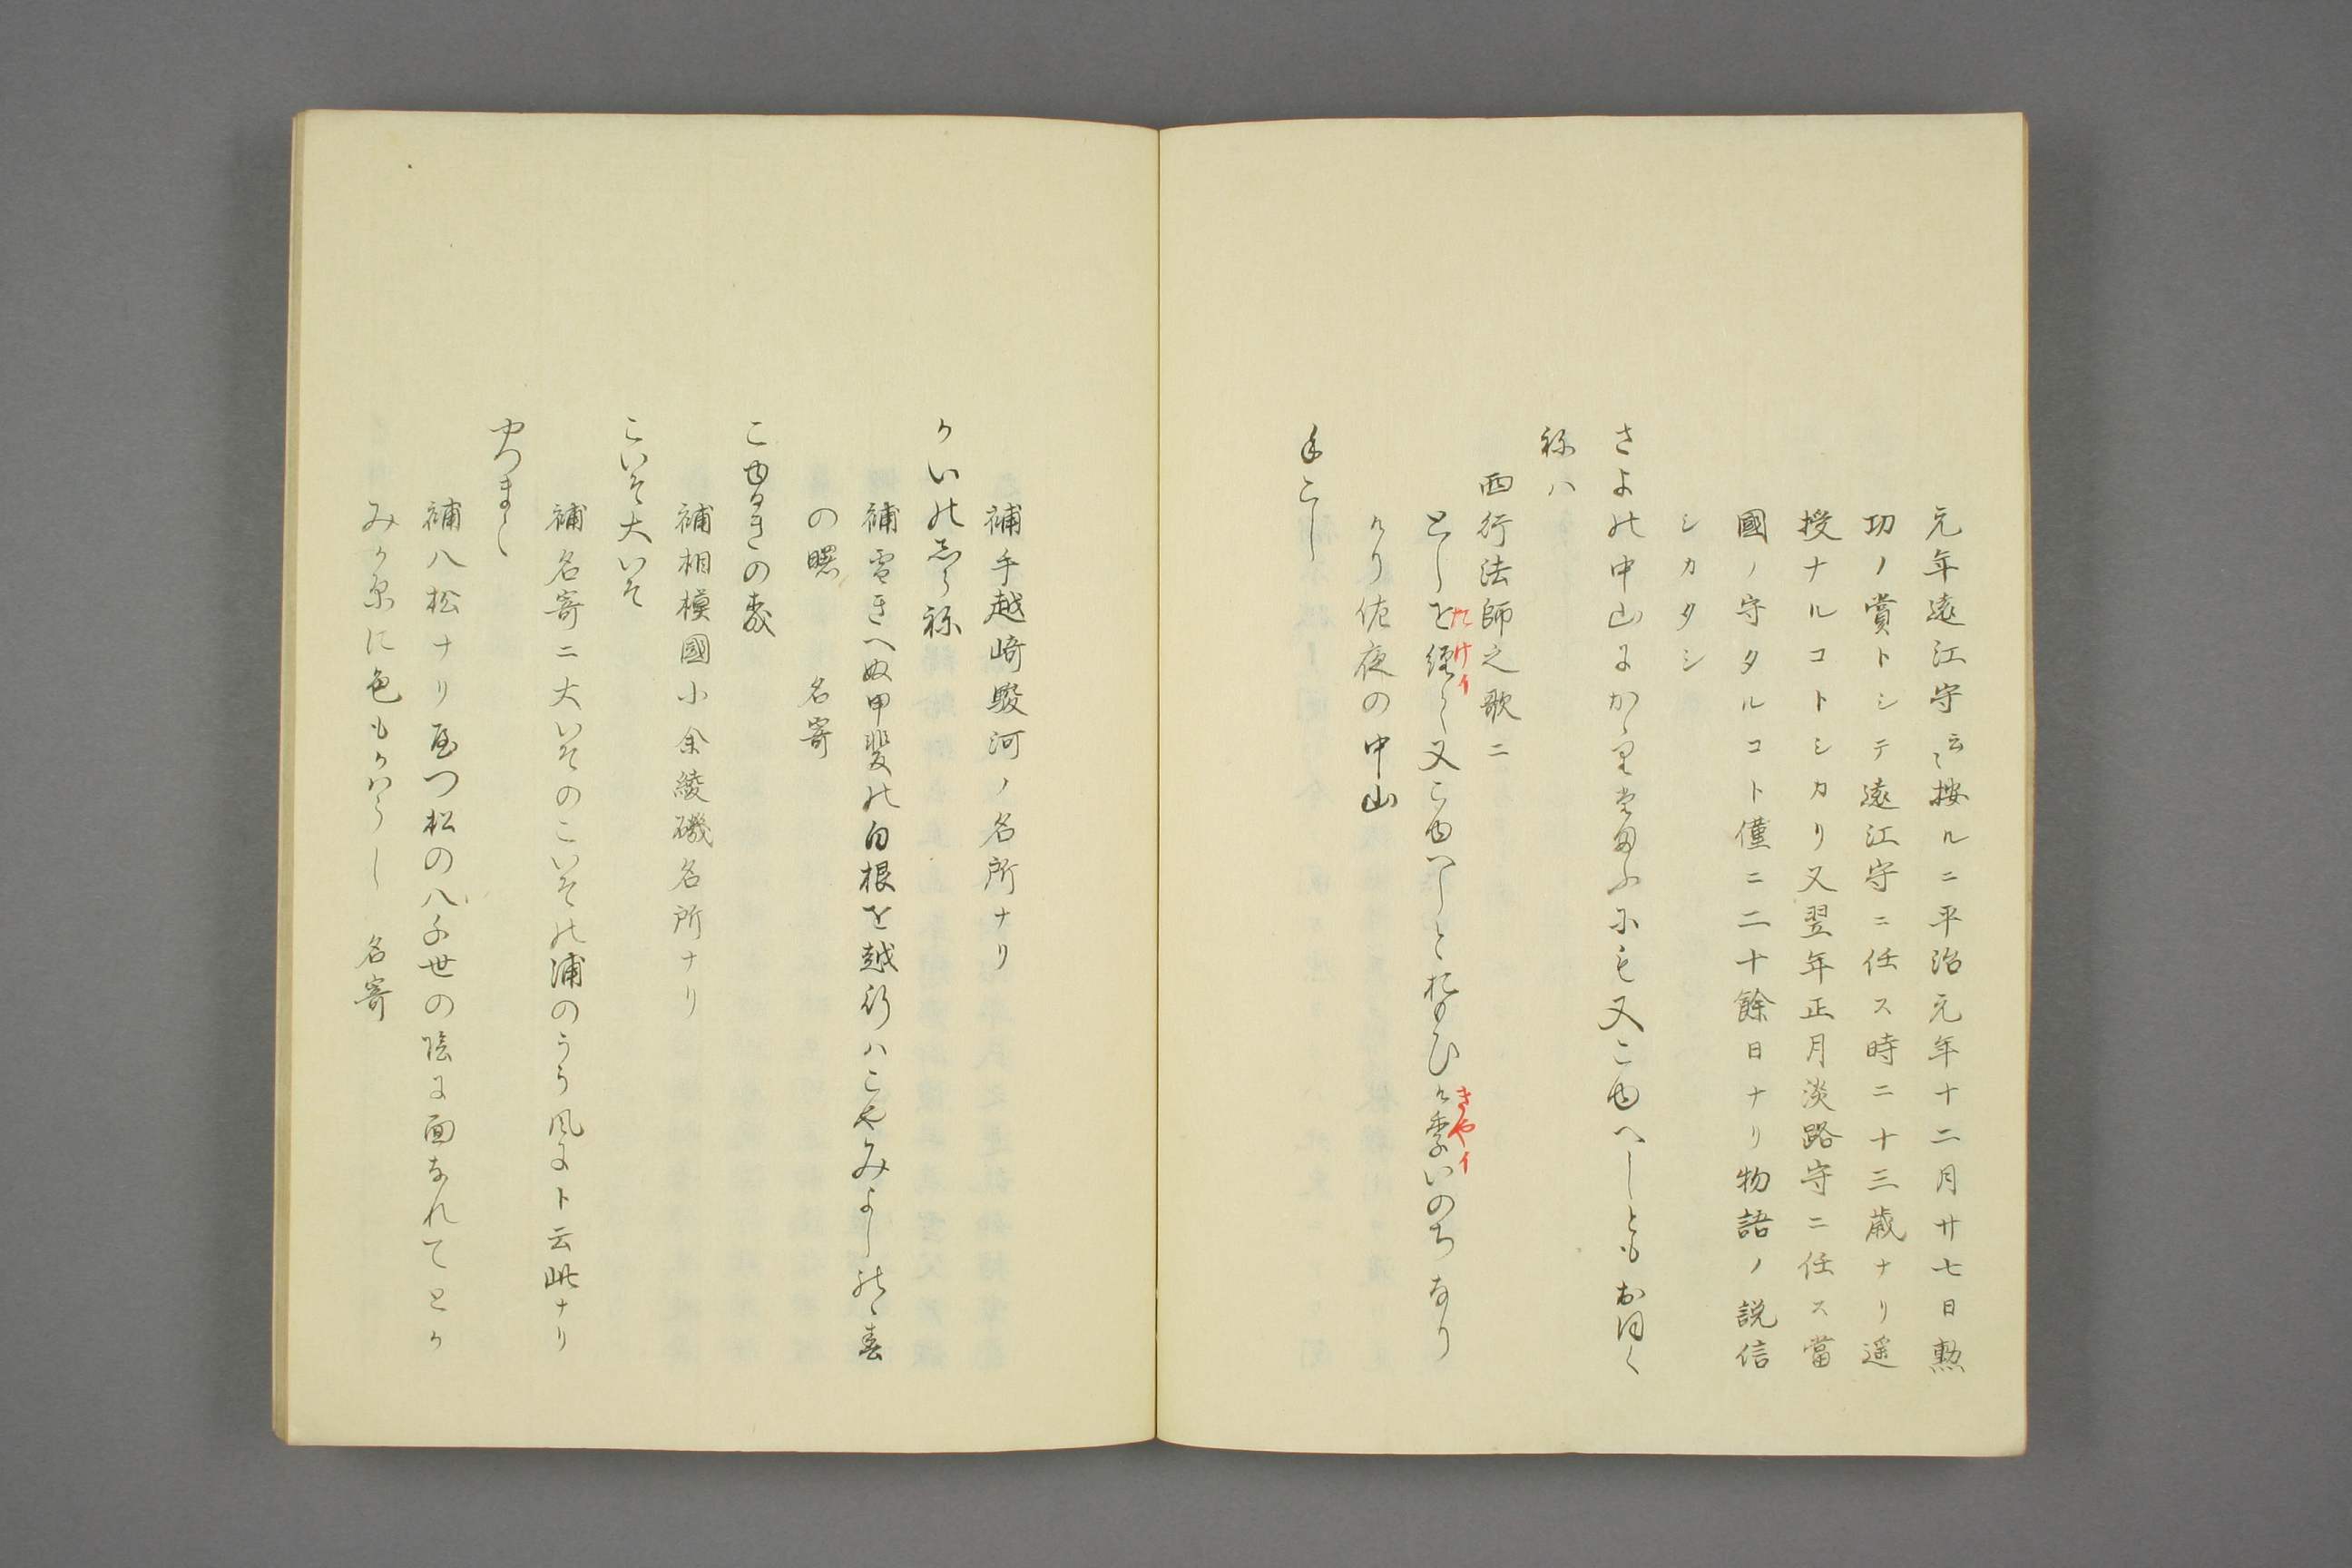 元年遠江守云〻按ルニ平治元年十二月廿七日勲
功ノ賞トシテ遠江守ニ任ス時ニ十三歳ナリ遥
授ナルコトシカリ又翌年正月淡路守ニ任ス當
國ノ守タルコト僅ニ二十餘日ナリ物語ノ説信
シカタシ
さよの中山にかゝり給ふにも又こゆへしともおほく
ねハ
西行法師之歌ニ
としを経て又こゆへしとおもひけりいのちなり
たけイ
きやイ
けり佐夜の中山
手こし
補手越崎駿河ノ名所ナリ
かいのしらね
補雪きへぬ甲斐の白根を越行ハこやみよしのゝ春
の曙 名寄
こゆるきの森
補相模國小余綾磯名所ナリ
こいそ大いそ
補名寄ニ大いそのこいその浦のうら風にト云此ナリ
やつまと
補八松ナリ屋つ松の八千世の陰に面なれてとか
みか原に色もかハらし 名寄